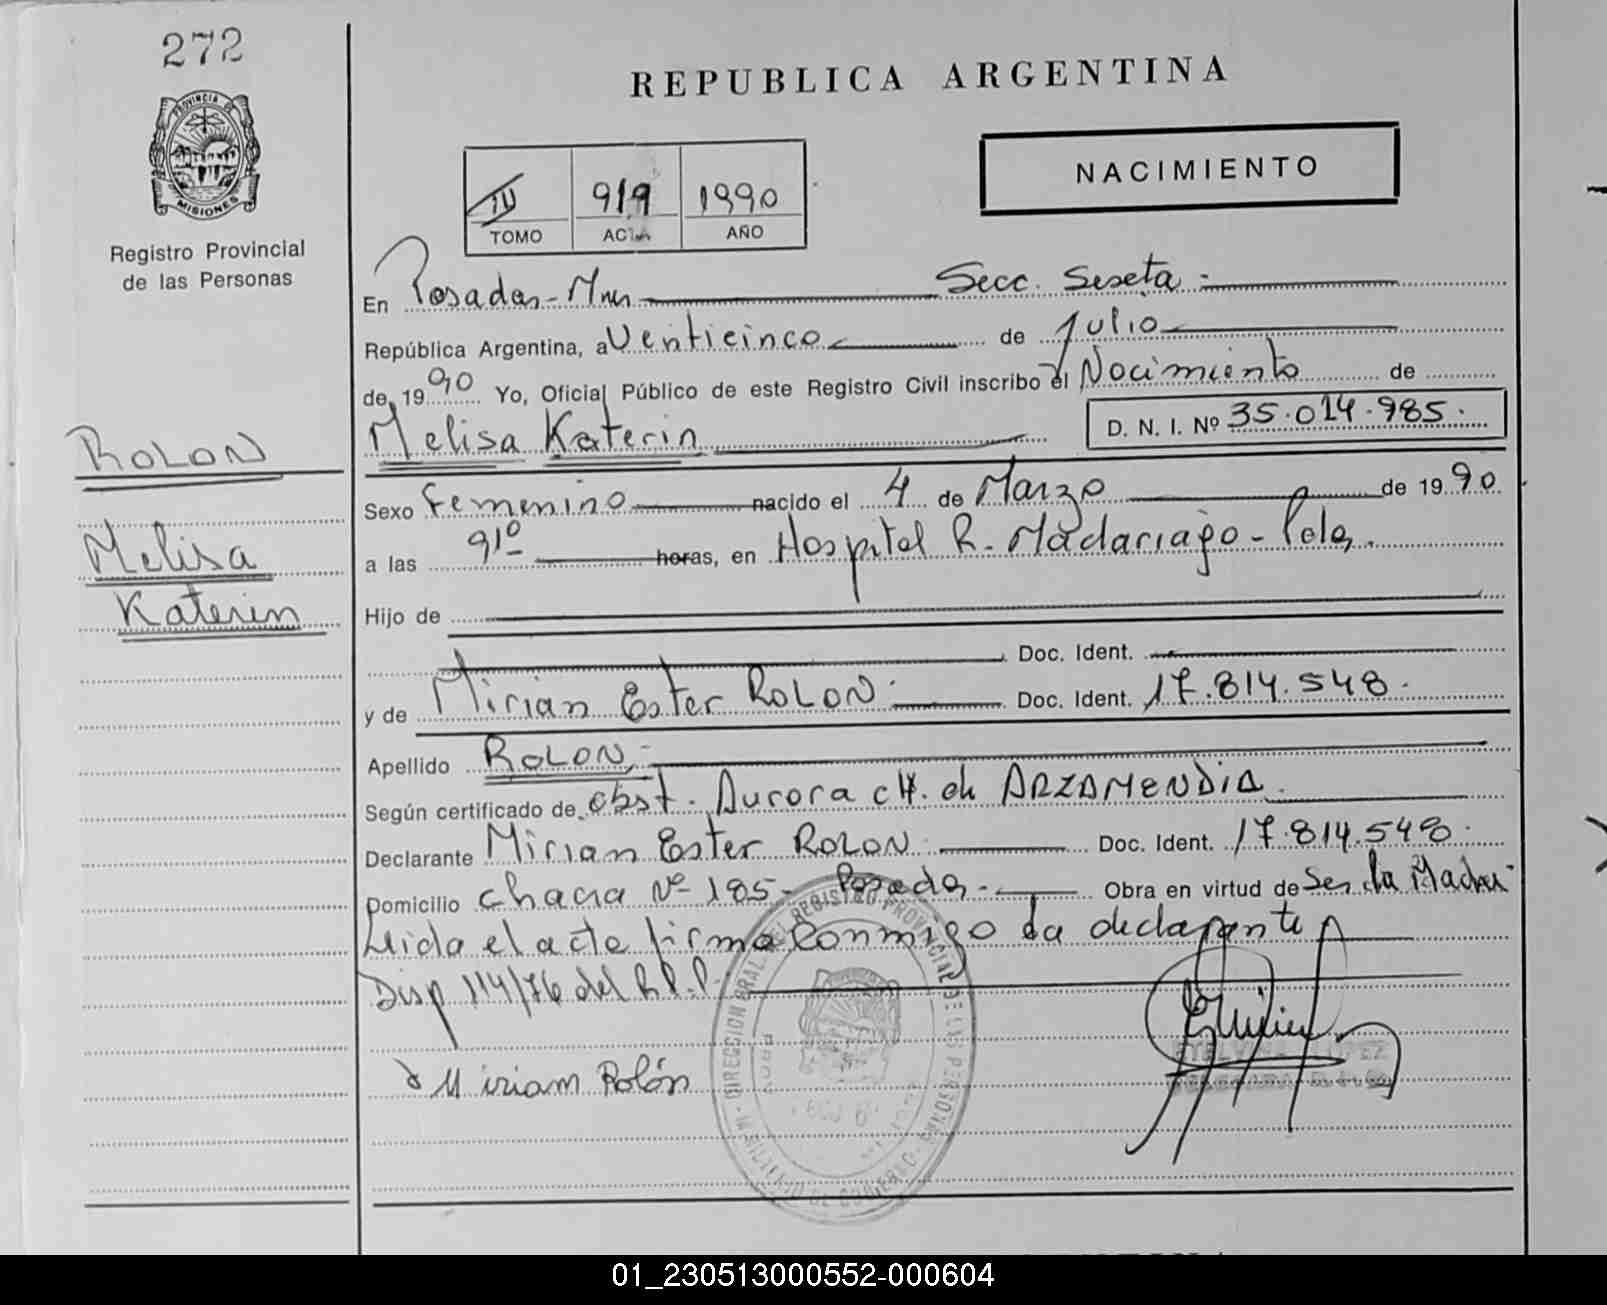 272
PROVINCIA DE
MISIONES
Registro Provincial
de las Personas
REPUBLICA ARGENTINA
NACIMIENTO
IV 919 1990
TOMO ACTA AÑO
En Posadas-Mnes Secc. Sexta.-
República Argentina, a Venticinco de Julio
de 1990 Yo, Oficial Público de este Registro Civil inscribo el Nacimiento de
Melisa Katerin D. N. I. Nº 35.014.985.
ROLON
Melisa
Katerin
Sexo Femenino nacido el 4 de Marzo de 1990
a las 910 horas, en Hospital R. Madariaga-Pdas.
Hijo de
Doc. Ident.
y de Mirian Ester ROLON.- Doc. Ident. 17.814.548.
Apellido ROLON.-
Según certificado de obst. Aurora CH. de ARZAMENDIA.
Declarante Mirian Ester ROLON. Doc. Ident. 17.814.548.
Domicilio Chacra Nº 185- Posadas.- Obra en virtud de Ser la Madre.-
Leida el acta firma conmigo la declarante
Disp 114/76 del R.P.P.
Miriam Rolón
DIRECCION GRAL. DEL REGISTRO PROVINCIAL DE LAS PERSONAS
MINISTERIO DE GOBIERNO
01_230513000552-000604